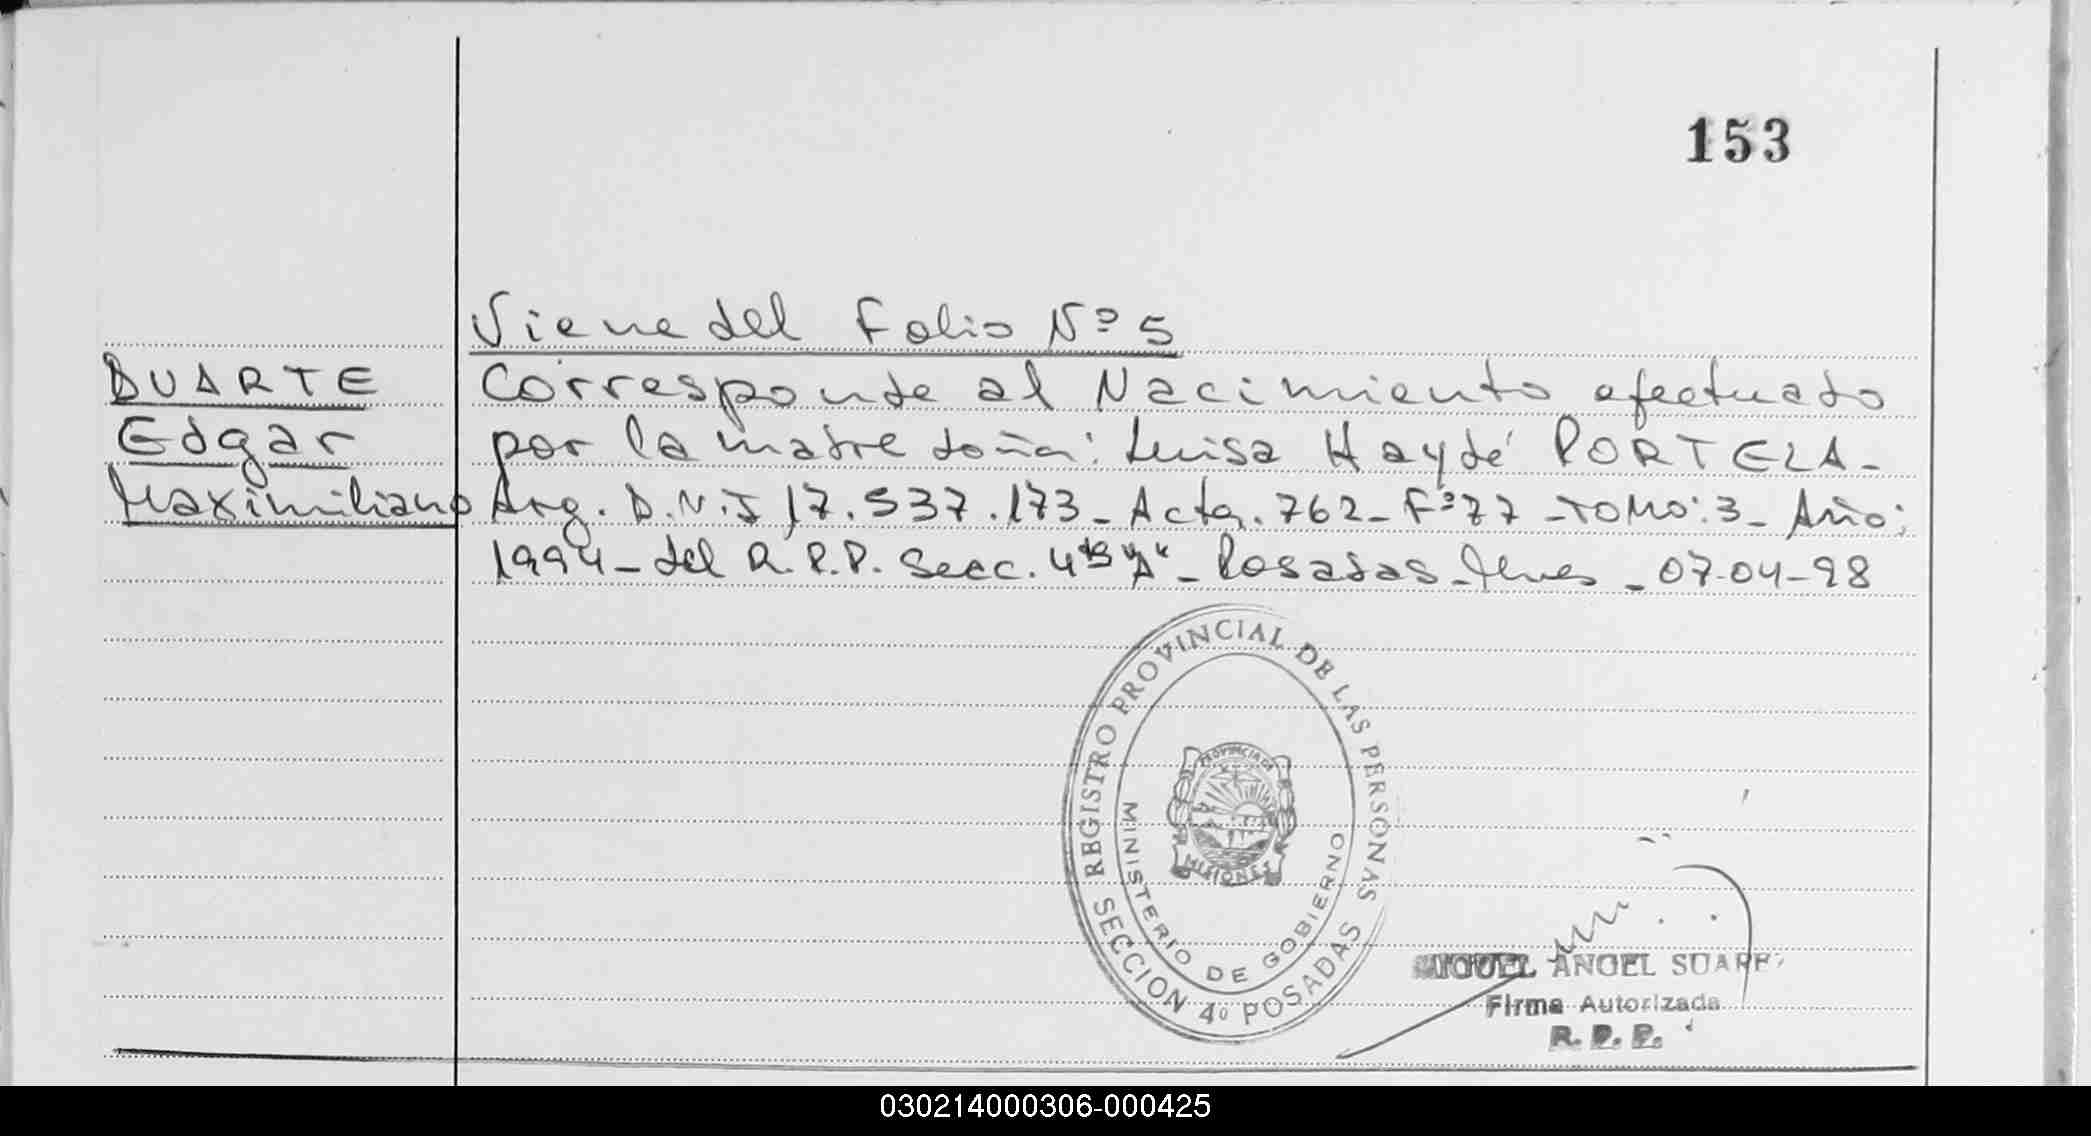 153
Viene del Folio Nº 5
DUARTE
Edgar
Maximiliano
Corresponde al Nacimiento efectuado
por la madre doña: Luisa Haydé PORTELA-
Arg. D.N.I 17.537.173- Acta. 762- Fº77 -TOMO: 3- Año:
1994- del R.P.P. Secc. 4ta "A"- Posadas- Mnes - 07-04-98
REGISTRO PROVINCIAL DE LAS PERSONAS
MINISTERIO DE GOBIERNO
PROVINCIA DE
MISIONES
SECCION 4º POSADAS
MIGUEL ANGEL SUAREZ
Firma Autorizada
R. P. P.
030214000306-000425